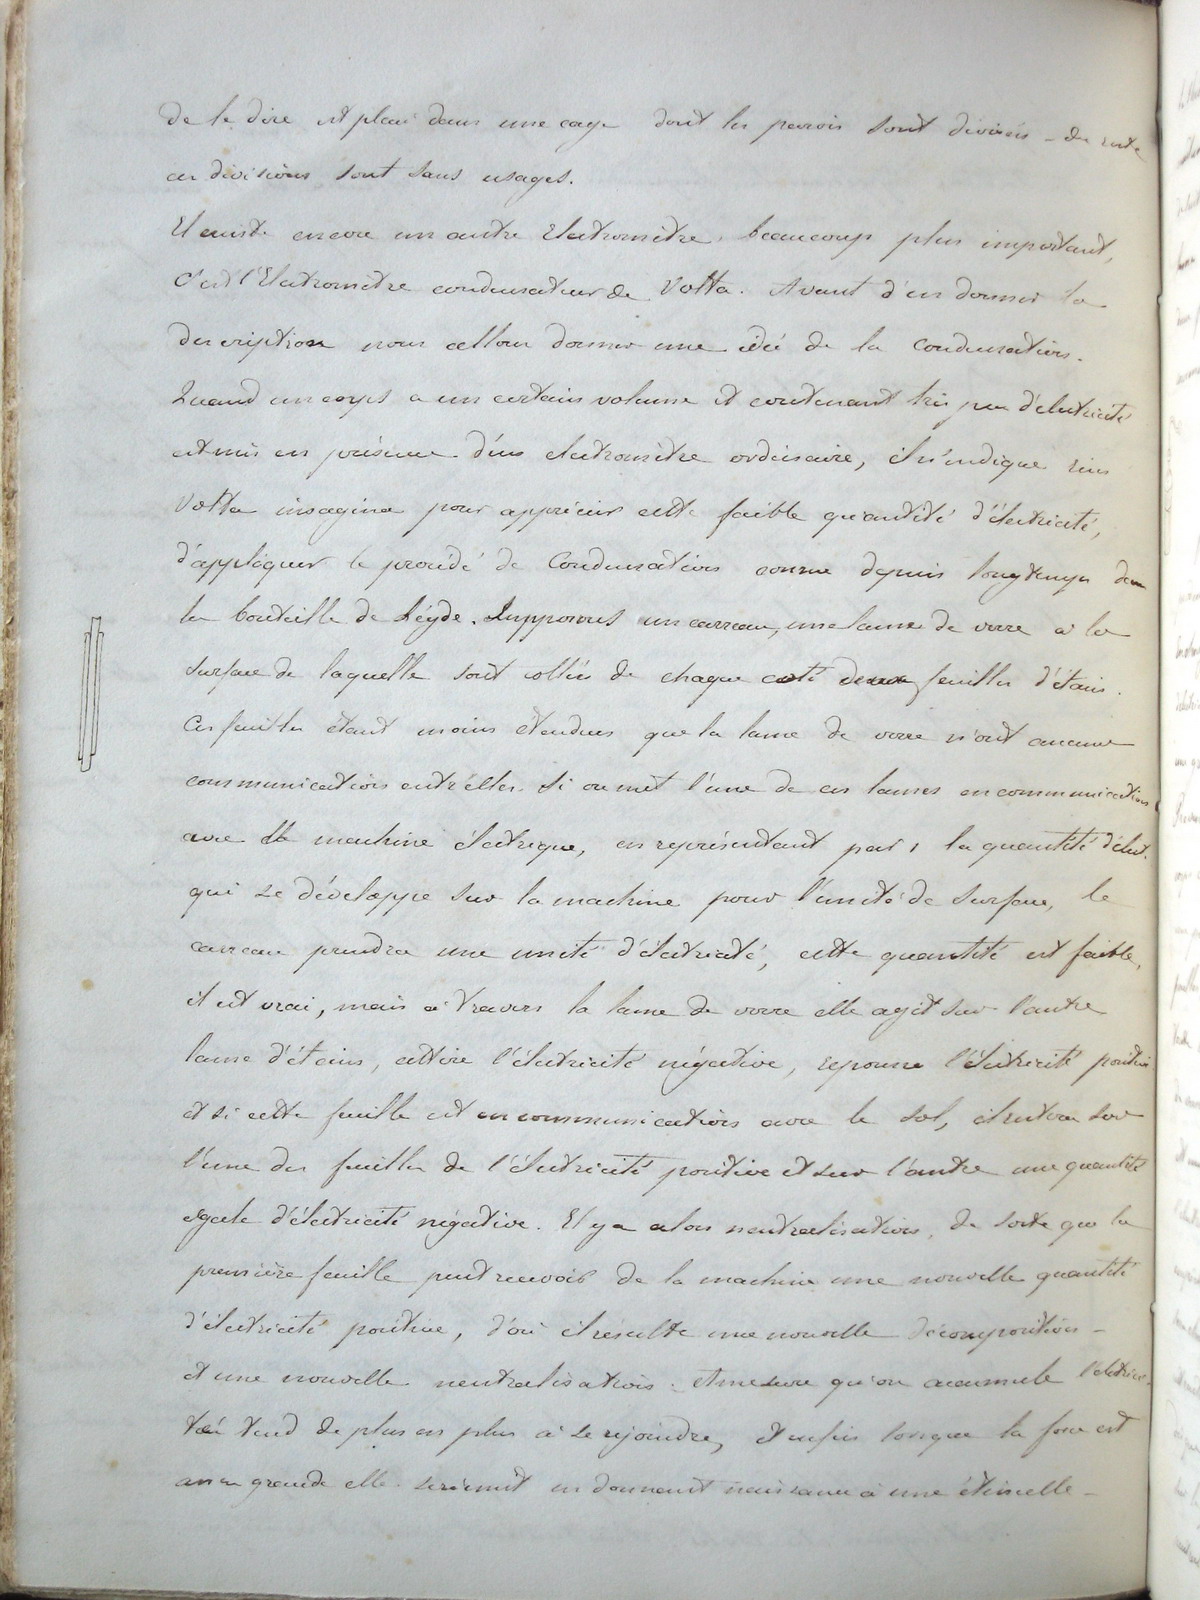 de le dire est placé dans une cage dont les parois sont divisées - du reste
ces divisions sont sans usages.
Il existe encore un autre Electromètre, beaucoup plus important,
C'est l'Electromètre condensateur de Volta. Avant d'en donner la
description nous allons donner une idée de la condensation.
Quand un corps a un certain volume et contenant très peu d'électricité
est mis en présence d'un electromètre ordinaire, il n'indique rien
Volta imagina pour apprécier cette faible quantité d'électricité,
d'appliquer le procédé de Condensation connue depuis longtemps dans
la bouteille de Léyde. Supposons un carreau, une lame de verre à la
surface de laquelle sont collées de chaque coté deux feuilles d'étain.
Ces feuilles étant moins étendues que la lame de verre n'ont aucune
communication entr'elles. Si on met l'une de ces lames en communication
avec la machine électrique, en représentant par 1 la quantité d'élect.
qui se développe sur la machine pour l'unité de surface, le
carreau prendra une unité d'électricité, cette quantité est faible,
il est vrai, mais à travers la lame de verre elle agit sur l'autre
lame d'étain, attire l'électricité négative, repousse l'électricité positive
et si cette feuille est en communication avec le sol, il restera sur
l'une des feuilles de l'électricité positive et sur l'autre une quantité
égale d'électricité négative. Il y a alors neutralisation, de sorte que la
première feuille peut recevoir de la machine une nouvelle quantité
d'électricité positive, d'où il résulte une nouvelle décomposition -
et une nouvelle neutralisation. A mesure qu'on accumule l'électrici-
té tend de plus en plus à se rejoindre, et enfin lorsque la force est
assez grande elle se réunit en donnant naissance à une étincelle -